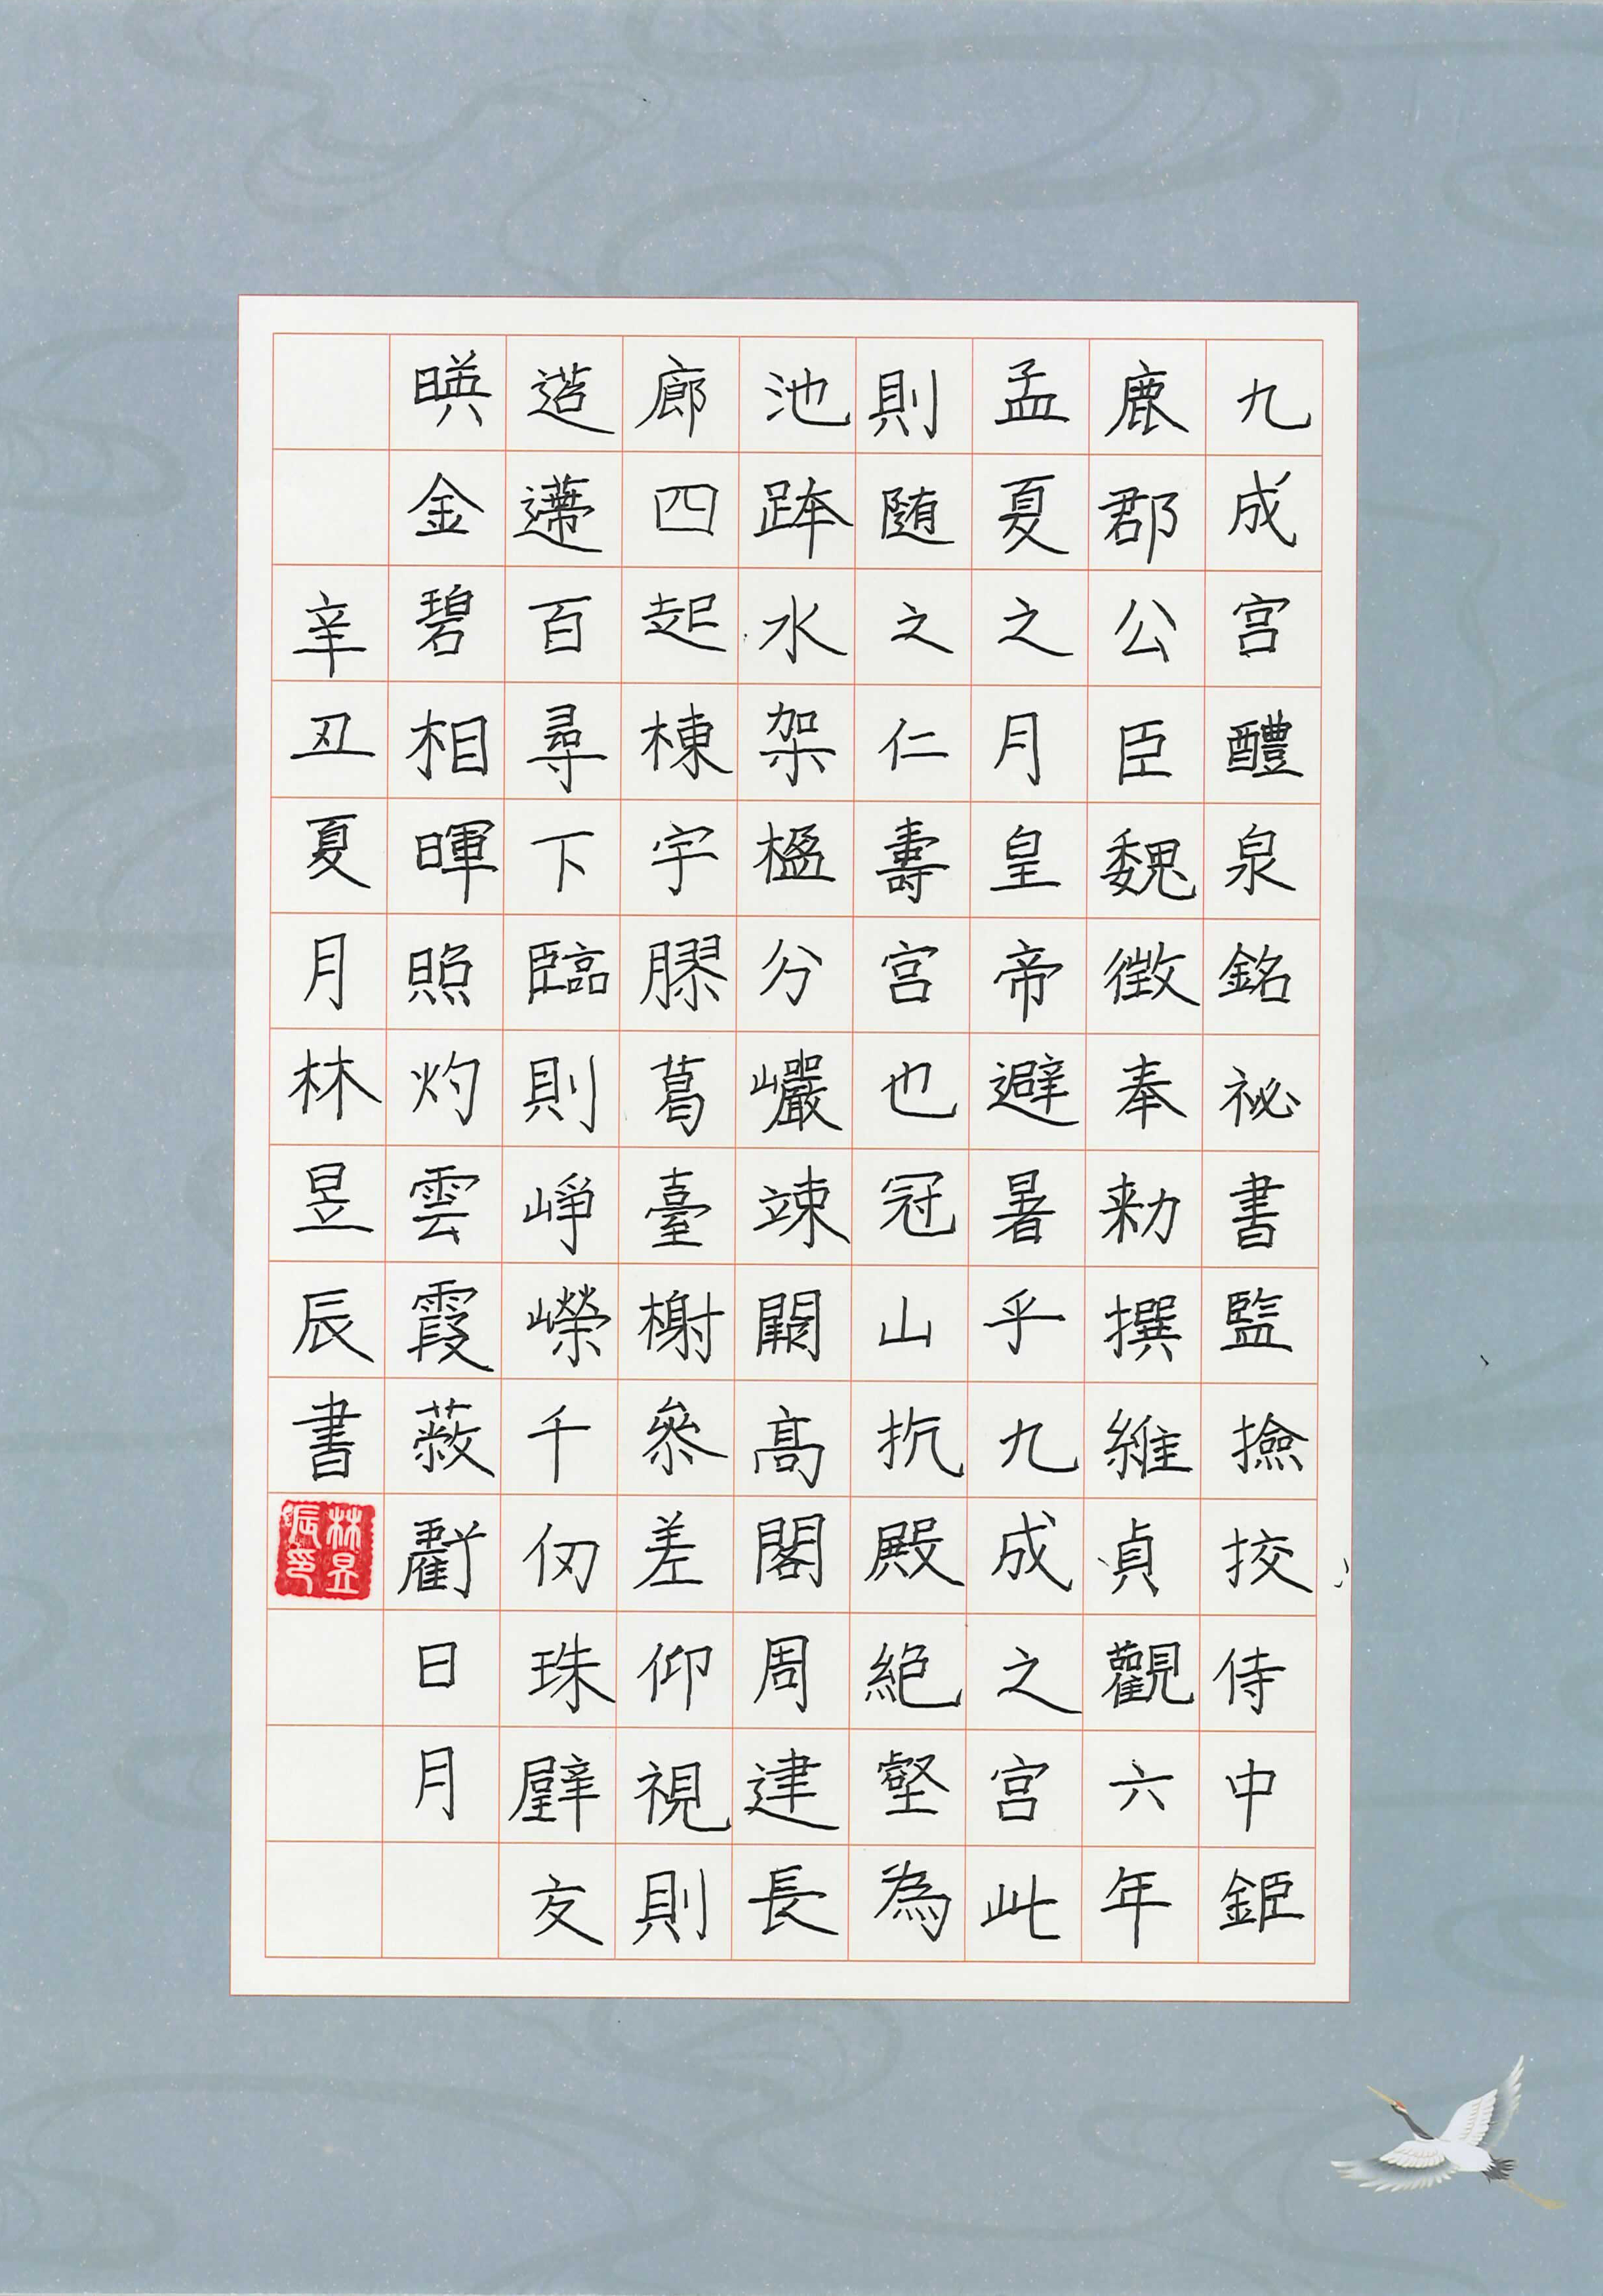 九成宮醴泉銘祕書監撿挍侍中鉅
鹿郡公臣魏徵奉勑撰維貞觀六年
孟夏之月皇帝避暑乎九成之宮此
則随之仁壽宮也冠山抗殿絕壑為
池跨水架楹分巖竦闕高閣周建長
廊四起棟宇膠葛臺榭參差仰視則
迢遰百尋下臨則崢嶸千仞珠璧交
暎金碧相暉照灼雲霞蔽虧日月
辛丑夏月林昱辰書
林昱辰印